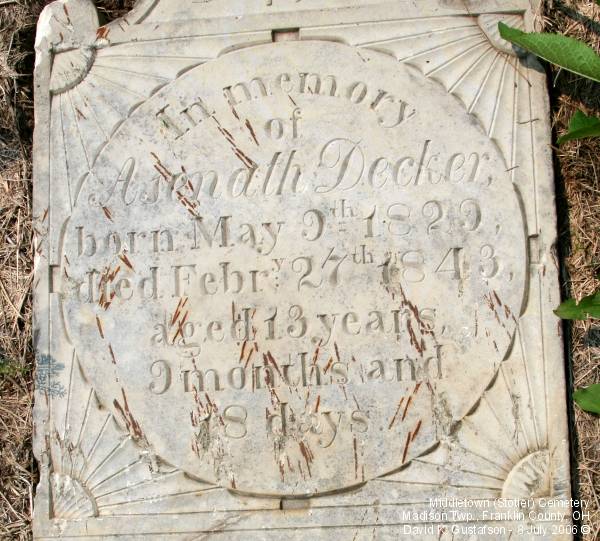 In memory
of
Asenath Decker,
born May 9th 1829,
died Febry 27th 1843,
aged 13 years,
9 months and
18 days
Middletown (Stotler) Cemetery
Madison Twp., Franklin County, OH
David K. Gustafson - 8 July 2006 ©